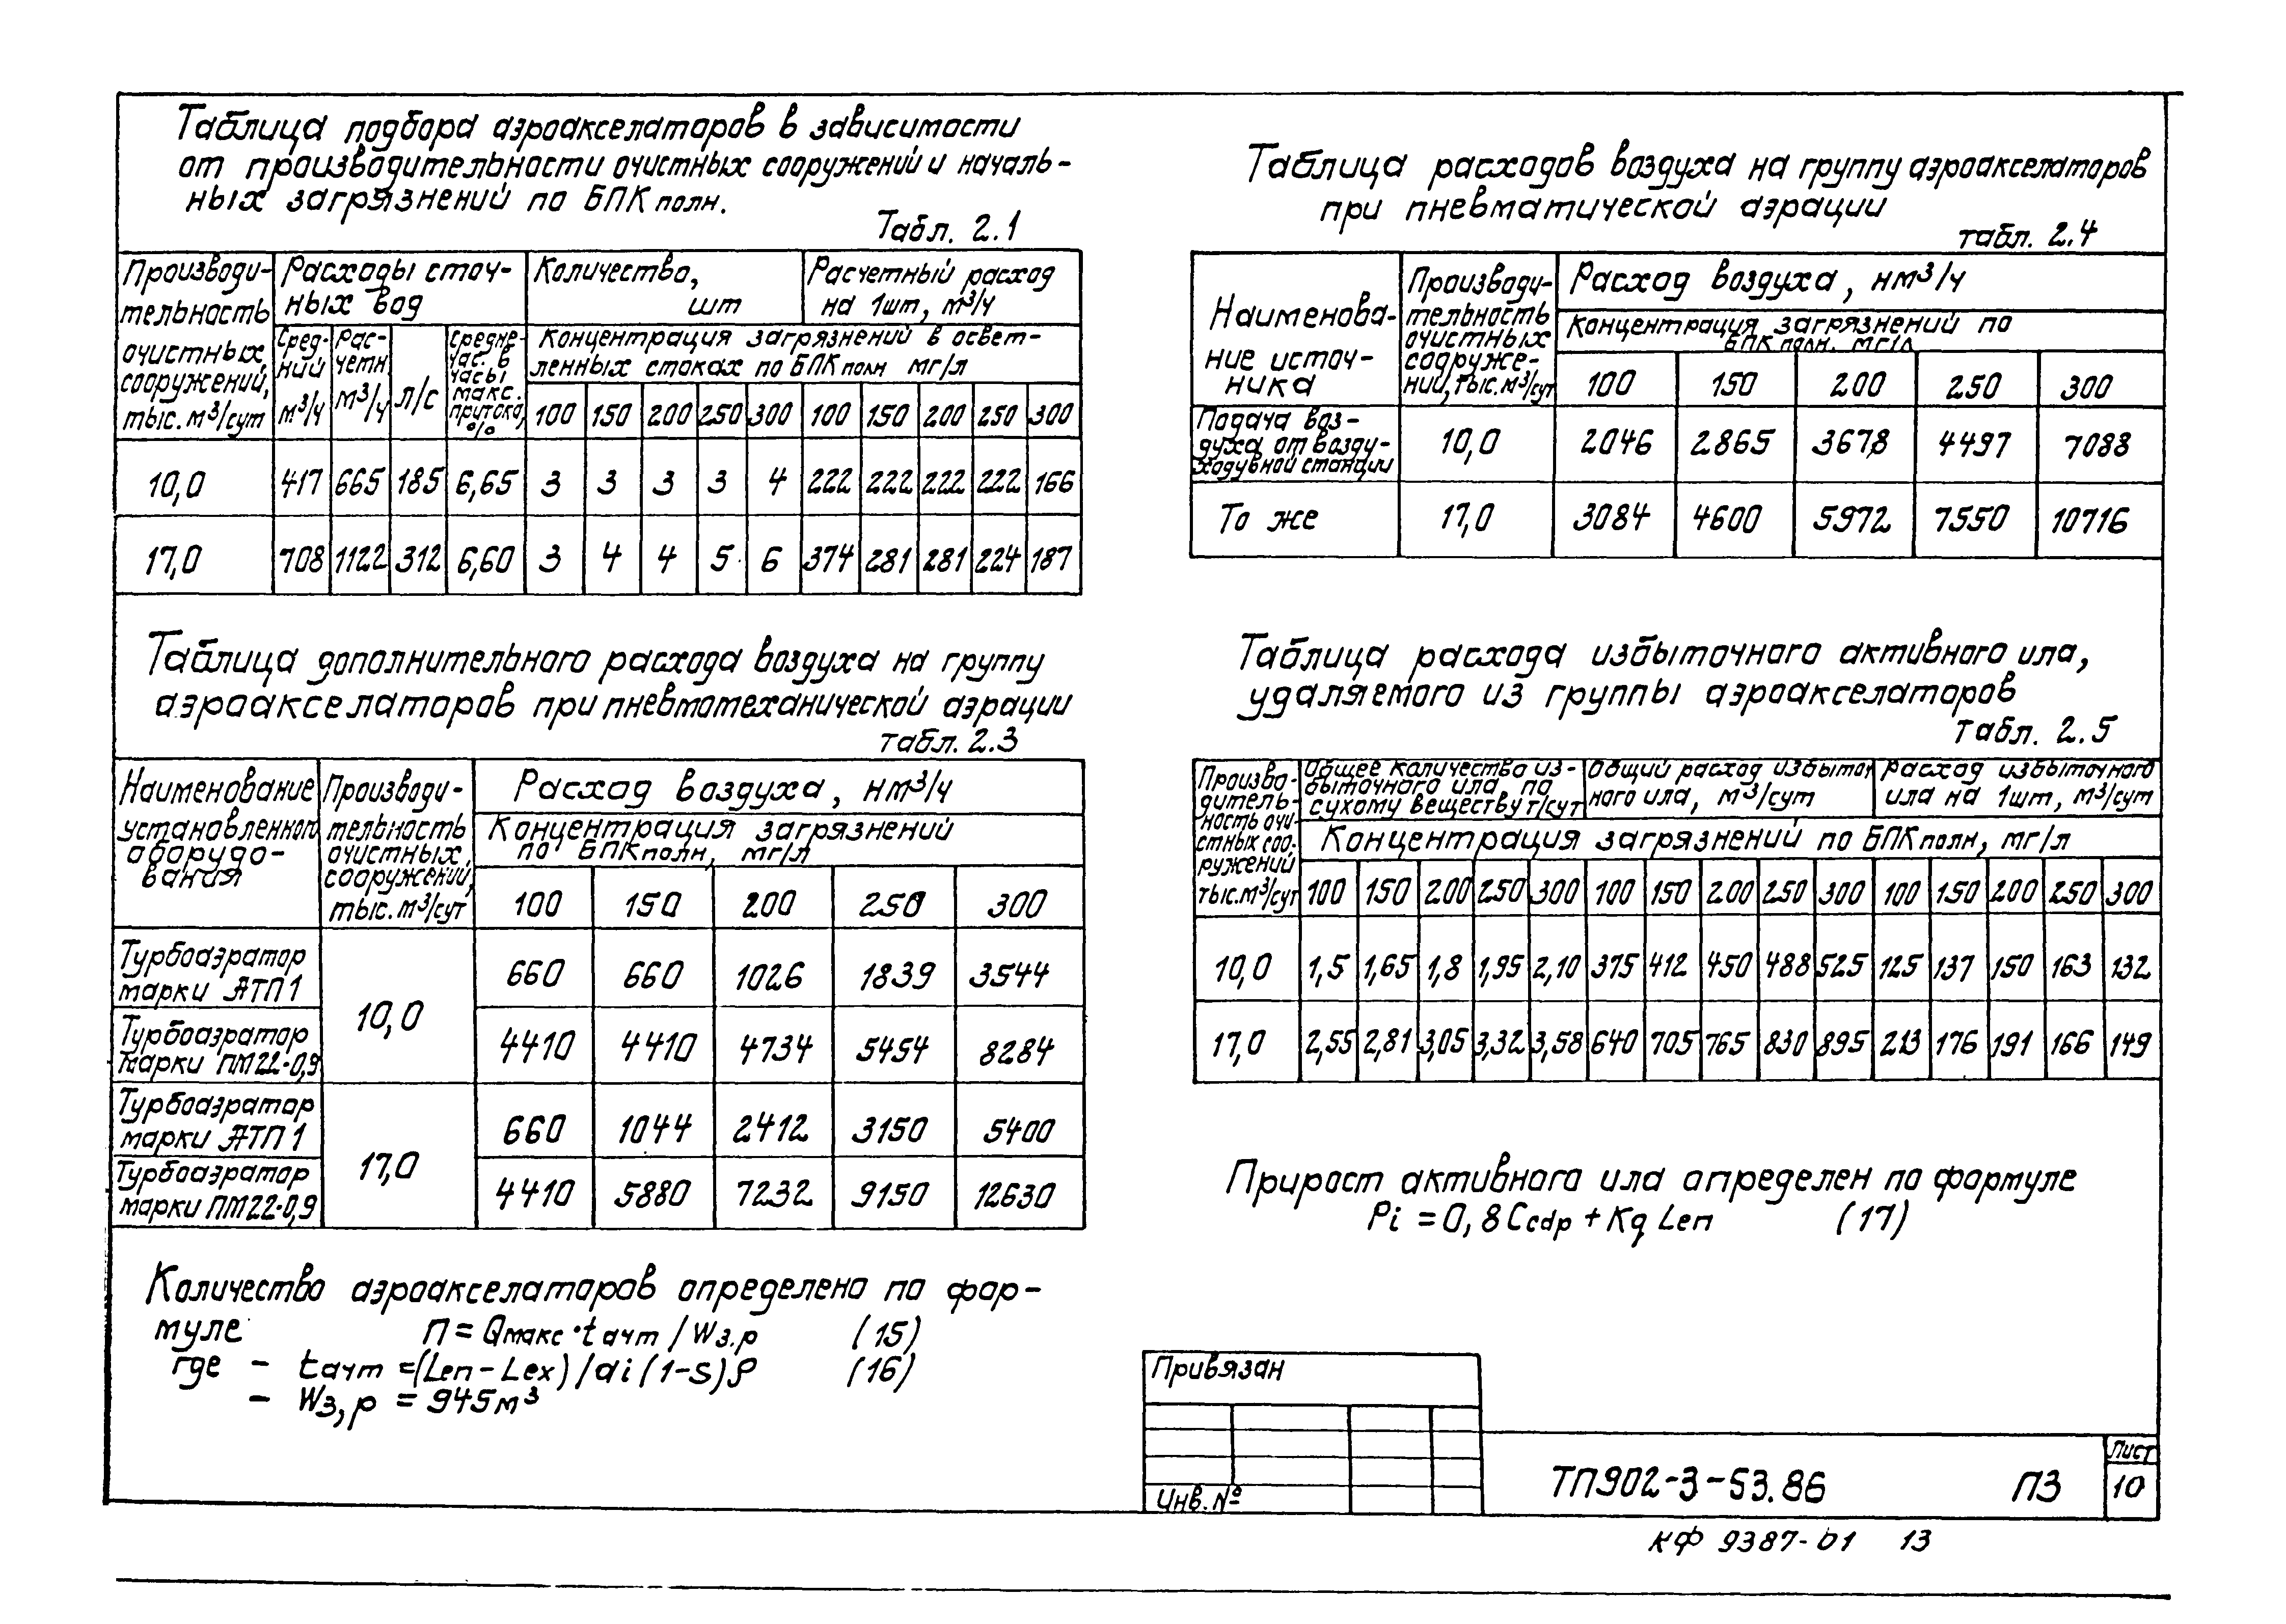 Таблица подбора аэроакселаторов в зависимости
от производительности очистных сооружений и началь-
ных загрязнений по БПК полн.
Табл. 2.1
Производи-
тельность
очистных
сооружений,
тыс. м³/сут
Расходы сточ-
ных вод
Количество,
шт
Расчетный расход
на 1шт, м³/ч
Сред-
ний
м³/ч
Рас-
четн
м³/ч
л/с
средне-
час. в
часы
макс.
притока,
%
Концентрация загрязнений в освет-
ленных стоках по БПК полн мг/л
100 150 200 250 300 100 150 200 250 300
10,0 417 665 185 6,65 3 3 3 3 4 222 222 222 222 166
17,0 708 1122 312 6,60 3 4 4 5 6 374 281 281 224 187
Таблица дополнительного расхода воздуха на группу
аэроакселаторов при пневмотеханической аэрации
табл. 2.3
Наименование
установленного
оборудо-
вания
Производи-
тельность
очистных
сооружений,
тыс. м³/сут
Расход воздуха, нм³/ч
Концентрация загрязнений
по БПК полн, мг/л
100 150 200 250 300
Турбоаэратор
марки АТП1
10,0
660 660 1026 1839 3544
Турбоаэратор
марки ПМ22-0,9
4410 4410 4734 5454 8284
Турбоаэратор
марки АТП1
17,0
660 1044 2412 3150 5400
Турбоаэратор
марки ПМ22-0,9
4410 5880 7232 9150 12630
Количество аэроакселаторов определено по фор-
муле n = Qмакс·tачт / Wз.р (15)
где - tачт =(Len-Lex)/ai(1-s)ρ (16)
- Wз,р = 945м³
Таблица расходов воздуха на группу аэроакселаторов
при пневматической аэрации
табл. 2.4
Наименова-
ние источ-
ника
Производи-
тельность
очистных
сооруже-
ний, тыс. м³/сут
Расход воздуха, нм³/ч
Концентрация загрязнений по
БПК полн. мг/л
100 150 200 250 300
Подача воз-
духа от возду-
ходувной станции
10,0 2046 2865 3678 4497 7088
То же 17,0 3084 4600 5972 7550 10716
Таблица расхода избыточного активного ила,
удаляемого из группы аэроакселаторов
табл. 2.5
Произво-
дитель-
ность очи-
стных соо-
ружений
тыс. м³/сут
Общее количество из-
быточного ила по
сухому веществу т/сут
Общий расход избыточ
ного ила, м³/сут
Расход избыточного
ила на 1шт, м³/сут
Концентрация загрязнений по БПК полн, мг/л
100 150 200 250 300 100 150 200 250 300 100 150 200 250 300
10,0 1,5 1,65 1,8 1,95 2,10 375 412 450 488 525 125 137 150 163 132
17,0 2,55 2,81 3,05 3,32 3,58 640 705 765 830 895 213 176 191 166 149
Прирост активного ила определен по формуле
Pi = 0,8Ccdp + Kg Len (17)
Привязан
Инв. №
ТП902-3-53.86 ПЗ
Лист
10
КФ 9387-01 13